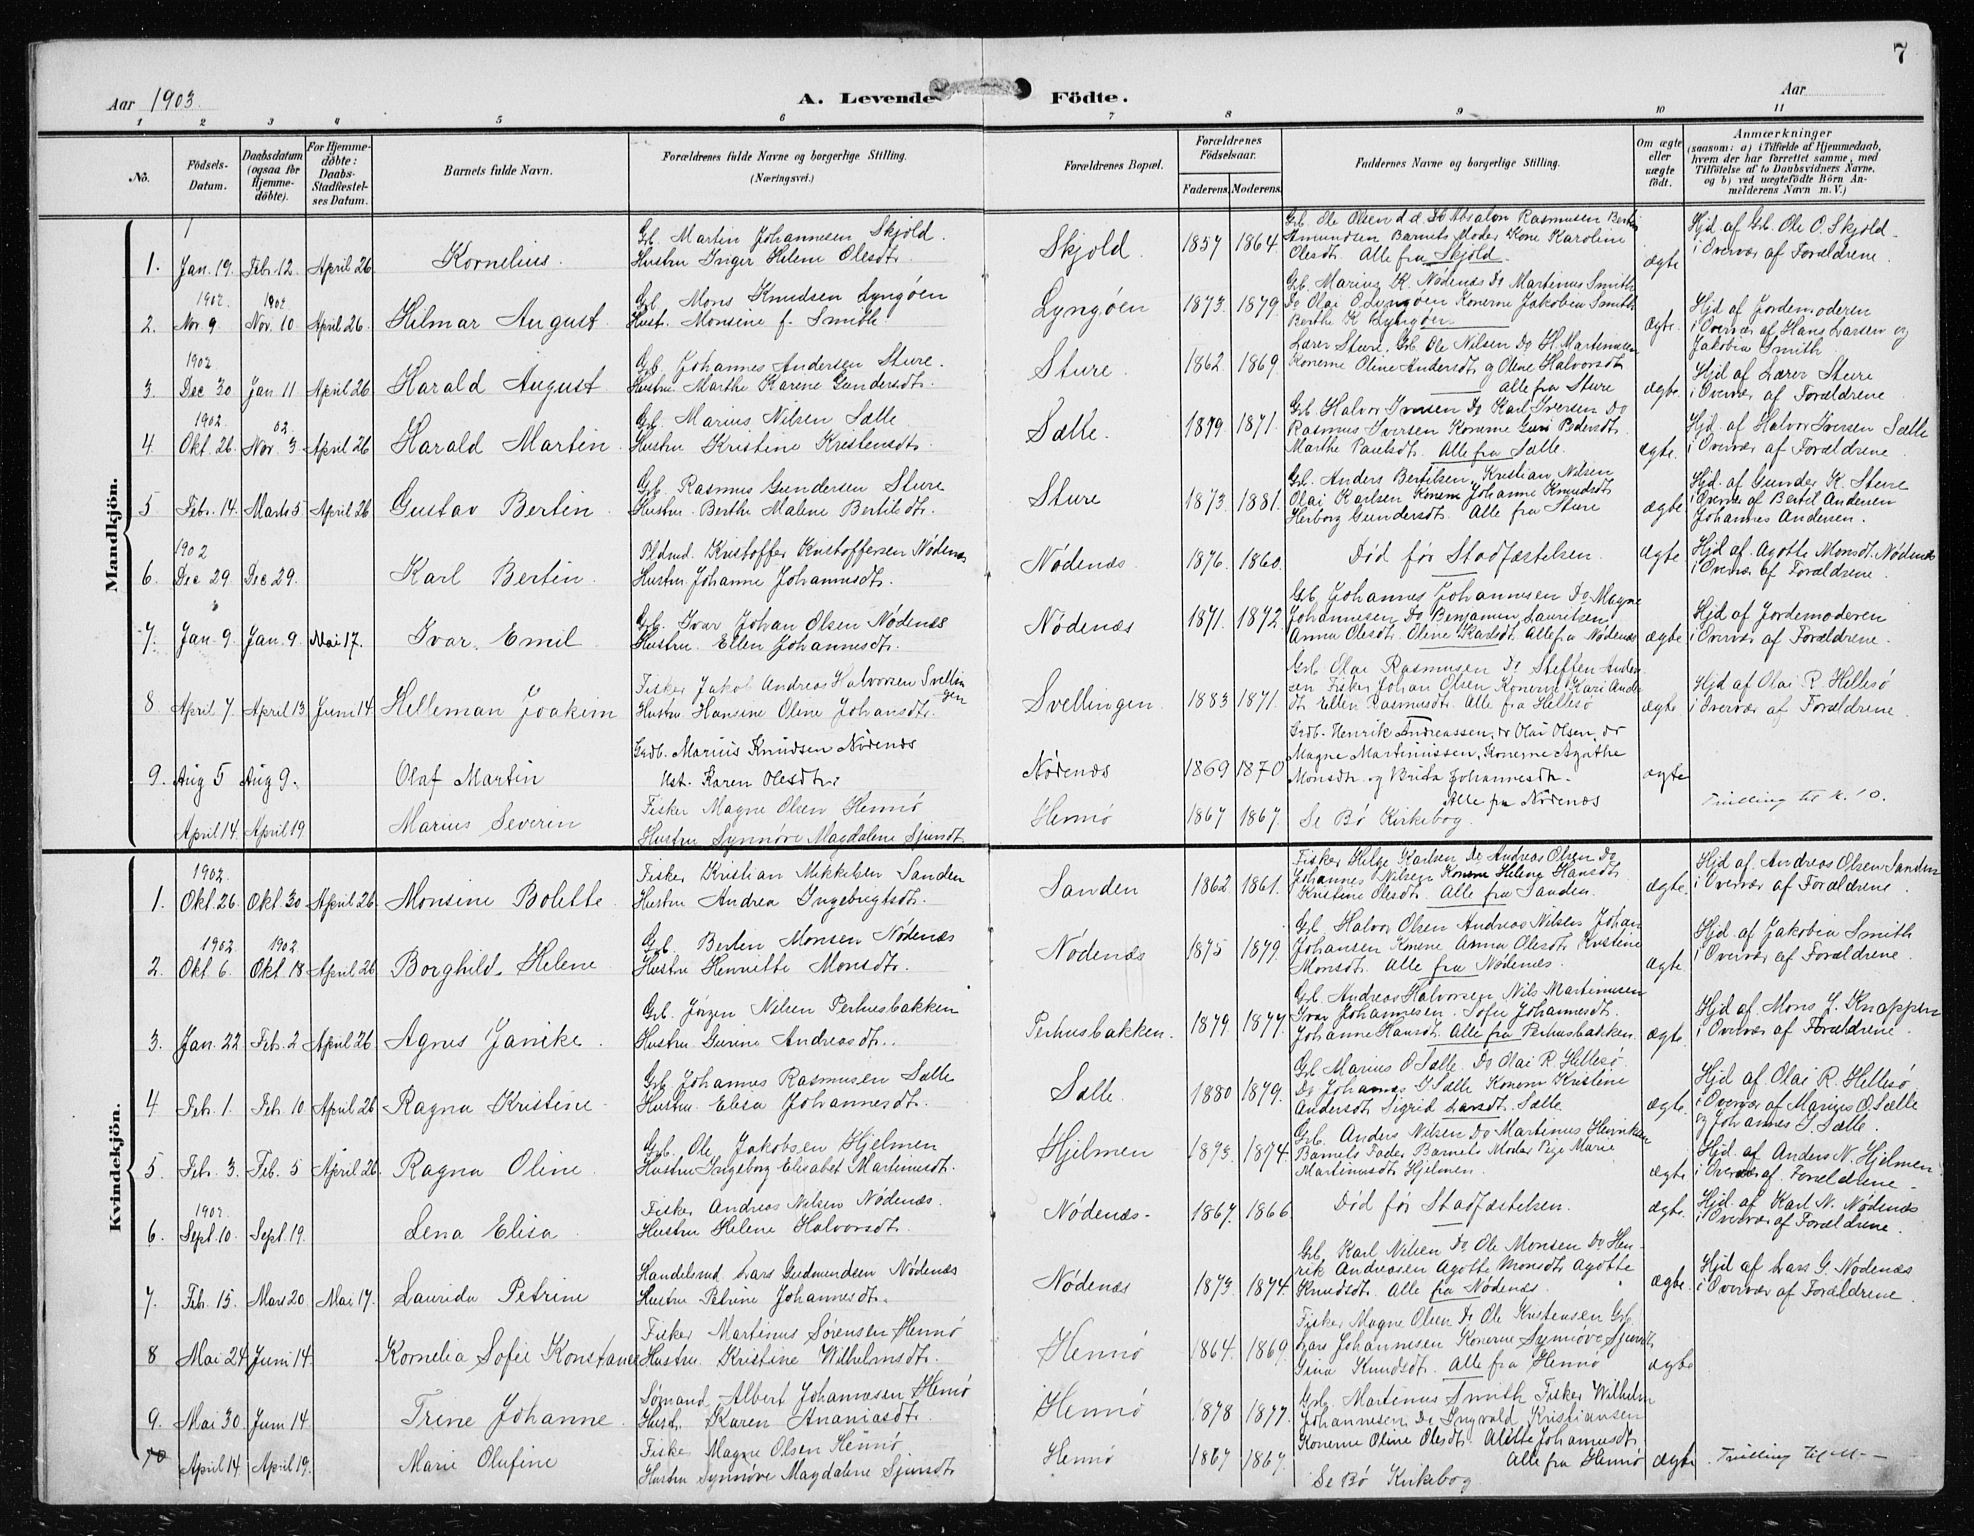 7
Aar 1903.
A. Levende Födte.
Aar
1 2 3 4 5 6 7 8 9 10 11
No.
Födsels-Datum.
Daabsdatum (ogsaa for Hjemmedøbte).
For Hjemmedøbte: Daabs-Stadfæstelses Datum.
Barnets fulde Navn.
Forældrenes fulde Navne og borgerlige Stilling. (Næringsvei.)
Forældrenes Bopæl.
Forældrenes Födselsaar.
Faderens. Moderens.
Faddernes Navne og borgerlige Stilling.
Om ægte eller uægte født.
Anmærkninger (saasom: a) i Tilfælde af Hjemmedaab, hvem der har forrettet samme, med Tilföielse af to Daabsvidners Navne, og b) ved uægtefödte Börn Anmelderens Navn m. V.)
Mandkjön.
1. Jan. 19. Feb. 12. April 26 Kornelius.
Grb. Martin Johannesen Skjold.
Hustru Inger Helene Olesdt.
Skjold. 1857 1864
Grb. Ole Olsen d.æ. Do Absalon Rasmusen Bertin
Amundsen Barnets Moder Kone Karoline
Olesdt. Alle fra Skjold.
ægte
Hjd. af Grb. Ole O. Skjold.
i Overvær af Forældrene.
1902. 1902
2. Nov. 9. Nov. 10 April 26. Hilmar August.
Grb. Mons Knudsen Lyngöen
Hust. Monsine f. Smith
Lyngöen 1873. 1879
Grb. Marius K. Nödenæs Do Martinus Smith
Do Olai O. Lyngöen Konerne Jakobia Smith
Berthe K. Lyngöen
ægte.
Hjd. af Jordemoderen
i Overvær af Hans Larsen og
Jakobia Smith.
1902
3. Dec 30 Jan 11 April 26 Harald August
Grb. Johannes Andersen Sture.
Hustru. Marthe Karene Gundersdt.
Sture. 1862 1869
Lærer Sture. Grb. Ole Nilsen Do H. Martinusen
Konerne Oline Andersdt. og Oline Halvorsdt
alle fra Sture
ægte.
Hjd af Lærer Sture
i Overvær af Forældrene.
1902. 02.
4. Okt. 26. Nov. 3 April 26 Harald Martin.
Grb. Marius Nilsen Sælle
Hustru Kristine Kristensdt.
Sælle. 1879 1871.
Grb. Halvor Iversen Do Karl Iversen Do
Rasmus Iversen Konerne Guri Pedersdt.
Marthe Paulsdt. Alle fra Sælle.
ægte.
Hjd. af Halvor Iversen Sælle
i Overvær af Forældrene
5 Febr. 14. Marts 5 April 26 Gustav Bertin.
Grb. Rasmus Gundersen Sture
Hustru. Berthe Malene Bertilsdt.
Sture 1873. 1881.
Grb. Anders Bertilsen, Kristian Nilsen
Olai Karlsen Konerne Johanne Knudsdt
Herborg Gundersdt. Alle fra Sture
ægte
Hjd. af Gunder K. Sture
i Overvær af Bertil Andersen
Johannes Andersen.
1902
6. Dec 29. Dec 29. Karl Bertin.
Kristoffer Kristoffersen Nödenæs
Hustru Johanne Johannesdt.
Nödenæs. 1876. 1860.
Död för Stadfæstelsen.
ægte
Hjd. af Agotte Monsdt. Nödenæs
i Overvær af Forældrene.
7. Jan. 9. Jan. 9. Mai 17. Ivar Emil
Grb. Ivar Johan Olsen Nödenæs
Hustru. Ellen Johannesdt.
Nödenæs 1871. 1872
Grb. Johannes Johannesen Do Magne
Johannesen Do Benjamin Lauritsen
Anna Olesdt. Oline Karlsdt. Alle fra Nödenæs
ægte
Hjd af Jordemoderen
i Overvær af Forældrene.
8 April 7 April 13 Juni 14 Helleman Joakim
Fisker Jakob Andreas Halvorsen Svellingen
Hustru Hansine Oline Johansdt.
Svellingen. 1883 1871.
Grb. Olai Rasmusen Do Steffen Andersen
Fisker Johan Olsen Konerne Kari Andersdt
Ellen Rasmusdt. Alle fra Hellesö
ægte
Hjd af Olai R. Hellesö
i Overvær af Forældrene.
9. Aug 5 Aug 9. Olaf Martin
Grdb. Marius Knudsen Nödenæs
Hst. Karen Olesdtr.
Nödenæs 1869 1870
Grdb. Henrik Andreassen, do Olai Olsen, do
Magne Martinussen, Konerne Agathe
Monsdtr. og Brita Johannesdtr.
Alle fra Nödenæs
ægte
April 14. April 19 Marius Severin
Fisker Magne Olsen Hennö
Hustru Synnöve Magdalene Sjursdt.
Hennö 1867 1867.
Se Bö Kirkebog.
Tvilling til K. 10.
Kvindekjön.
1902.
1. Okt. 26. Okt. 30 April 26 Monsine Bolette
Fisker Kristian Mikkelsen Sanden
Hustru Andrea Ingebrigtsdt.
Sanden 1862 1861.
Fisker Helge Karlsen Do Andreas Olsen Do
Johannes Nilsen Konerne Helene Hansdt.
Kristine Olesdt. Alle fra Sanden.
ægte.
Hjd af. Andreas Olsen Sanden
i Overvær af Forældrene.
1902 1902
2. Okt 6. Okt 18 April 26 Borghild Helene
Grb. Bertin Monsen Nödenæs
Hustru Henriette Monsdt.
Nödenæs 1875 1879.
Grb. Halvor Olsen Andreas Nilsen Johan
Johansen Konerne Anna Olesdt. Kristine
Monsdt. Alle fra Nödenæs.
ægte
Hjd. af Jakobia Smith
i Overvær af Forældrene.
3. Jan. 22 Feb. 2 April 26 Agnes Janike.
Grb. Jörgen Nilsen Perhusbakken
Hustru Gurine Andreasdt.
Perhusbakken. 1879. 1877.
Grb. Andreas Halvorsen Nils Martinusen
Ivar Johannesen. Sofie Johannesdt.
Johanne Hansdt. Alle fra Perhusbakken.
ægte.
Hjd af Mons J. Knappen
i Overvær af Forældrene.
4 Feb. 1. Feb. 10 April 26 Ragna Kristine.
Grb. Johannes Rasmusen Sælle
Hustru. Elisa Johannesdt.
Sælle. 1880 1879.
Grb. Marius O Sælle. Do Olai R. Hellesö
Do Johannes S Sælle Konerne Kristine
Andersdt. Sigrid Larsdt. Sælle
ægte.
Hjd af Olai R. Hellesö
i Overvær af Marius O. Sælle
og Johannes S. Sælle.
5. Feb. 3. Feb. 5 April 26. Ragna Oline.
Grb. Ole Jakobsen Hjelmen
Hustru Ingeborg Elisabet Martinusdt.
Hjelmen 1873. 1874.
Grb. Anders Nilsen Do Martinus Henriksen
Barnets Fader Barnets Moder Pige Marie
Martinusdt Hjelmen.
ægte
Hjd. af Anders N. Hjelmen
i Overvær af. Forældrene.
1902.
6. Sept. 10. Sept. 19. Lena Elisa.
Fisker. Andreas Nilsen Nödenæs.
Hustru Helene Halvorsdt.
Nödenæs. 1867. 1866.
Död för Stadfæstelsen.
ægte.
Hjd. af Karl N. Nödenæs
i Overvær af Forældrene.
7. Feb. 15. Mars 20 Mai 17. Laurida Petrine
Handelsmd. Lars Gudmundsen Nödenæs
Hustru Petrine Johannesdt.
Nödenæs 1873. 1874.
Grb. Karl Nilsen Do Ole Monsen Do Henrik
Andreasen Agotte Monsdt. Agotte
Knudsdt. Alle fra Nödenæs.
ægte.
Hjd af Lars G. Nödenæs
i Overvær af Forældrene.
8 Mai 24 Juni 14. Kornelia Sofie Konstanse
Fisker Martinus Sörensen Hennö
Hustru. Kristine Wilhelmsdt.
Hennö 1864. 1869.
Fisker Magne Olsen Do Ole Kristensen Grb.
Lars Johannesen Konerne Synnöve Sjursdt.
Gina Knudsdt. Alle fra Hennö
ægte
9. Mai 30 Juni 14. Trine Johanne.
Sömand. Albert Johannesen Hennö
Hust. Karen Ananiasdt.
Hennö 1878 1877.
Grb. Martinus Smith Fisker Wilhelm
Johannesen Do Ingvald Kristiansen
Konerne Oline Olesdt. Alette Johannesdt.
Alle fra Hennö
ægte
10 April 14. April 19. Marie Olufine
Fisker Magne Olsen Hennö.
Hustru Synnöve Magdalene Sjursdt.
Hennö 1867 1867.
Se Bö Kirkebog.
Tvilling til M —